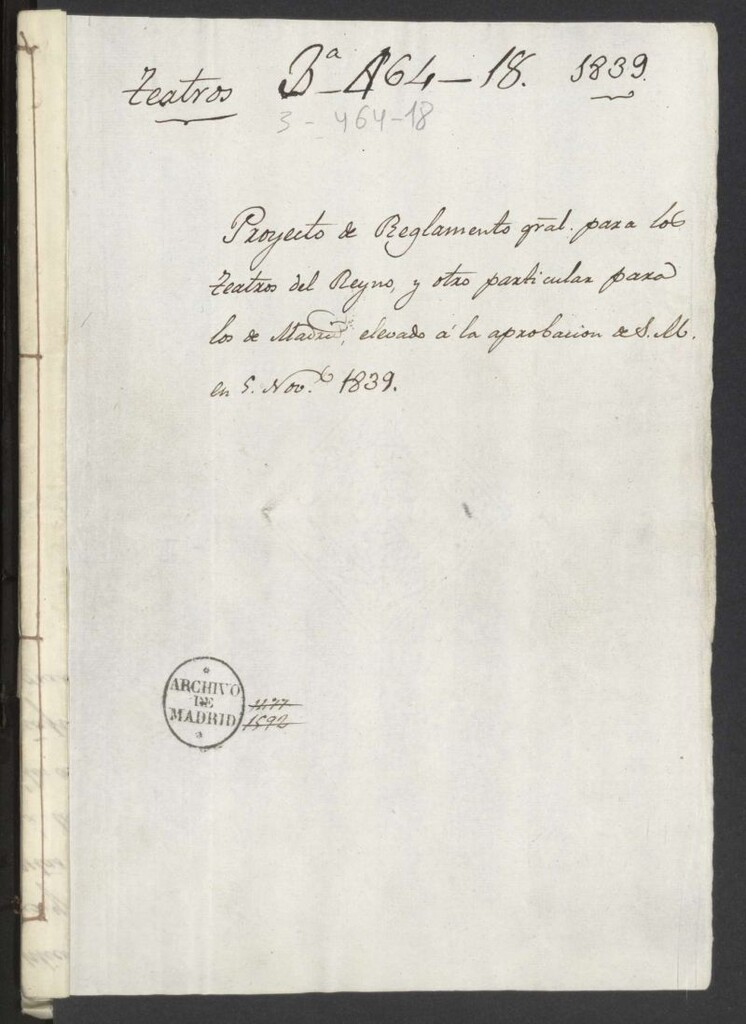 Teatros 3ª-464-18. 1839.
3-464-18
Proyecto de Reglamento gral. para los
Teatros del Reyno, y otro particular para
los de Madrid, elevado á la aprobacion de S. M.
en 5. Nov.e 1839.
ARCHIVO
DE
MADRID
1592